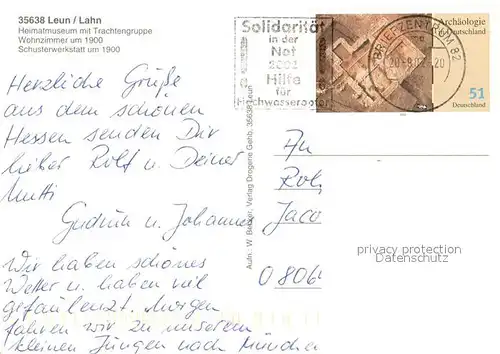 35638 Leun / Lahn
Heimatmuseum mit Trachtengruppe
Wohnzimmer um 1900
Schusterwerkstatt um 1900
Solidarität
in der
Not
2002
Hilfe
für
Hochwasseropfer
BRIEFZENTRUM 82
Archäologie
in Deutschland
51
Deutschland
Herzliche Grüße
aus dem schönen
Hessen senden Dir
lieber Rolf u. Deiner
Mutti
Gudrun u. Johannes
Wir haben schönes
Wetter u. haben viel
gefaulenzt. Morgen
fahren wir zu unserem
kleinen Jungen nach München
Aufn.: W. Verlag Drogerie Gehb, 35638 Leun
An
Rol
Jaco
0806
privacy protection
Datenschutz